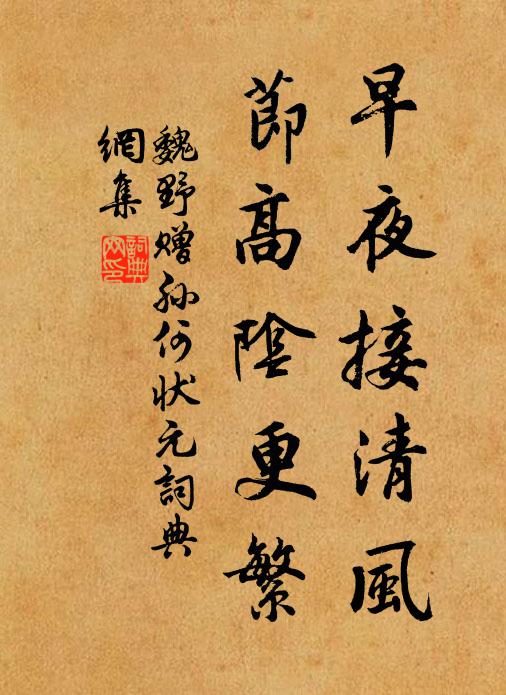 早夜接清風
節高陰更繁
魏野贈孙何状元詞典
網集
詞典
网印